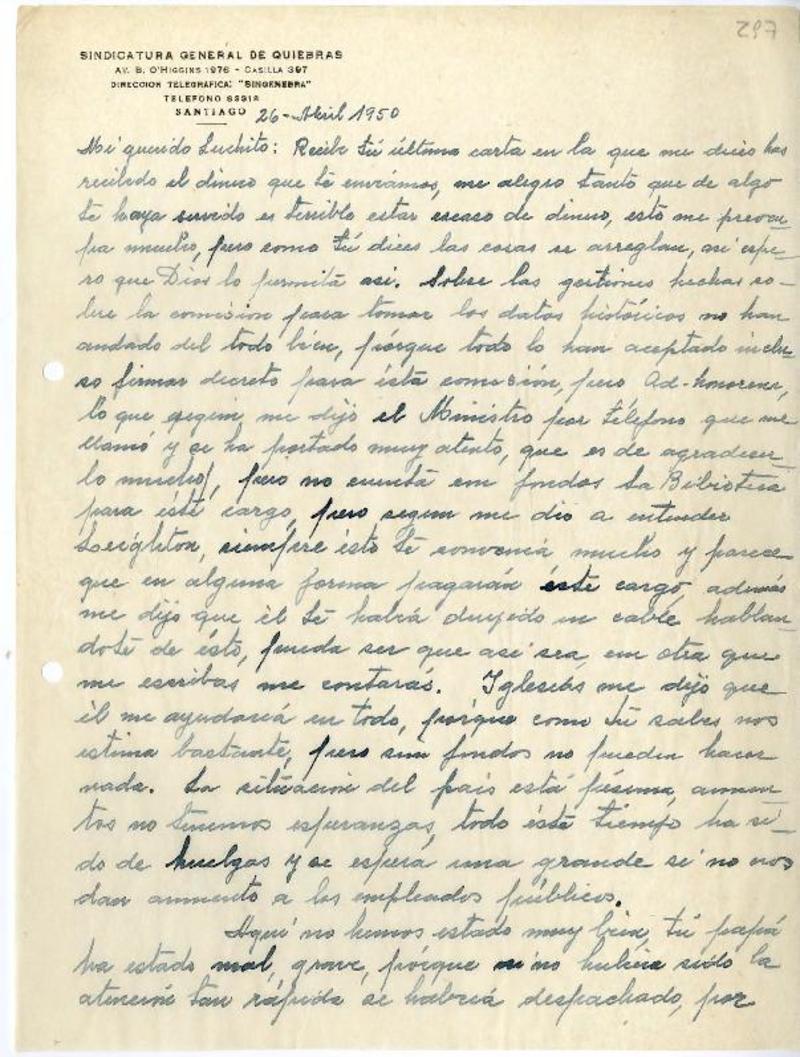 297
SINDICATURA GENERAL DE QUIEBRAS
AV. B. O'HIGGINS 1976 - CASILLA 397
DIRECCION TELEGRAFICA: "SINGENEBRA"
TELEFONO 83918
SANTIAGO 26-Abril 1950
Mi querido Luchito: Recibi tú última carta en la que me dices has
recibido el dinero que té enviámos, me alegro tanto que de algo
té haya servido es terrible estar escaso de dinero, esto me preocu_
pa mucho, pero como tú dices las cosas se arreglan, asi espe_
ro que Dios lo permitá asi. Sobre las gestiones hechas so_
bre la comision para tomar los datos históricos no han
andado del todo bien, pórque todo lo han aceptado inclu_
so firmar decreto para ésta comisión, pero Ad-honorem,
lo que segun me dijo el Ministro por teléfono que me
llamó y se ha portado muy atento, que es de agradecer_
lo mucho, pero no cuentá con fondos la Biblioteca
para éste cargo, pero segun me dio a entender
Leighton, siempre ésto té convenia mucho y parece
que en alguna forma pagarán éste cargo, además
me dijo que él té habia dirijido un cable hablan_
doté de ésto, pueda ser que asi sea, em otra que
me escribas me contarás. Iglesias me dijo que
él me ayudaria en todo, pórque como tú sabes nos
estima bastante, pero sin fondos no pueden hacer
nada. La situacion del pais está pésima, aumen_
tos no tenemos esperanzas, todo éste tiempo ha si_
do de huelgas y se espera una grande si no nos
dan aumento a los empleados públicos.
Aqui no hemos estado muy bien, tú papá
ha estado mal, grave, pórque si no hubiera sido la
atención tan rápida se habria despachado, por